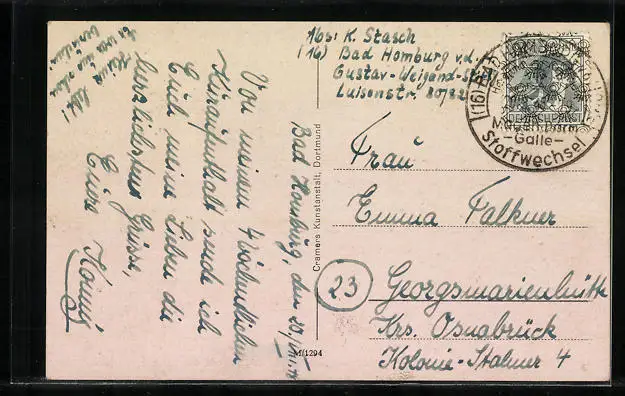 Abs: K. Stasch
(16) Bad Homburg v.d.
Gustav-Weigand-
Luisenstr. 80/82
(16) BAD HOMBURG
Magen-Darm
-Galle-
Stoffwechsel
DEUTSCHE POST
Bad Homburg, den
Von meinem 4 wöchentlichen
Kuraufenthalt sende ich
Euch meine Lieben die
herzlichsten Grüsse,
Eure
Cramers Kunstanstalt, Dortmund
M/1294
Frau
Emma Falkner
(23) Georgsmarienhütte
Krs. Osnabrück
Kolonie-Stahmer 4